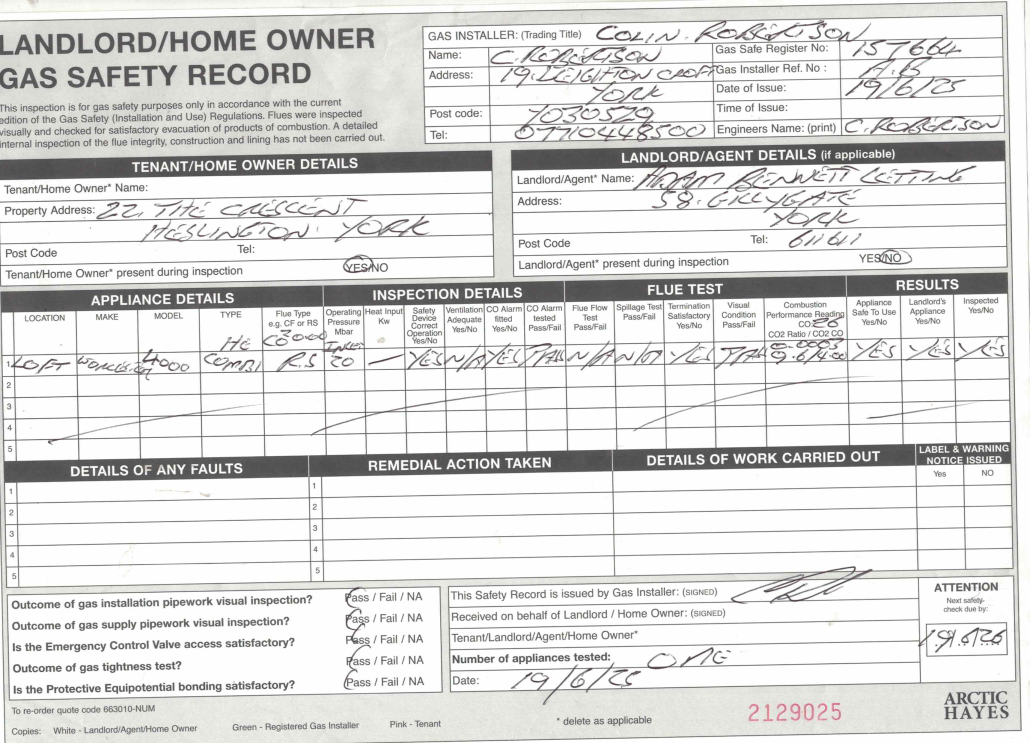 LANDLORD/HOME OWNER
GAS SAFETY RECORD
This inspection is for gas safety purposes only in accordance with the current
edition of the Gas Safety (Installation and Use) Regulations. Flues were inspected
visually and checked for satisfactory evacuation of products of combustion. A detailed
internal inspection of the flue integrity, construction and lining has not been carried out.
GAS INSTALLER: (Trading Title) COLIN. ROBERTSON
Name: C. ROBERTSON
Gas Safe Register No: 157664
Address: 19. LEIGHTON CROFT
Gas Installer Ref. No : A.B
YORK
Date of Issue: 19/6/25
Post code: YO30 5Z9
Time of Issue:
Tel: 07710448500
Engineers Name: (print) C. ROBERTSON
TENANT/HOME OWNER DETAILS
Tenant/Home Owner* Name:
Property Address: 22, THE CRESCENT
HESLINGTON. YORK
Post Code Tel:
Tenant/Home Owner* present during inspection YES/NO
LANDLORD/AGENT DETAILS (if applicable)
Landlord/Agent* Name: ADAM BENNETT LETTING
Address: 58. GILLYGATE
YORK
Post Code Tel: 611611
Landlord/Agent* present during inspection YES/NO
APPLIANCE DETAILS INSPECTION DETAILS FLUE TEST RESULTS
LOCATION
MAKE
MODEL
TYPE
HE
Flue Type
e.g. CF or RS
Operating
Pressure
Mbar
INLET
Heat Input
Kw
Safety
Device
Correct
Operation
Yes/No
Ventilation
Adequate
Yes/No
CO Alarm
fitted
Yes/No
CO Alarm
tested
Pass/Fail
Flue Flow
Test
Pass/Fail
Spillage Test
Pass/Fail
Termination
Satisfactory
Yes/No
Visual
Condition
Pass/Fail
Combustion
Performance Reading
CO: 26
CO2 Ratio / CO2 CO
0.0003
Appliance
Safe To Use
Yes/No
Landlord's
Appliance
Yes/No
Inspected
Yes/No
1 LOFT 4000 COMBI R.S 20 — YES N/A YES N/A N/A YES 9.6/4.00 YES YES YES
2
3
4
5
DETAILS OF ANY FAULTS REMEDIAL ACTION TAKEN DETAILS OF WORK CARRIED OUT LABEL & WARNING
NOTICE ISSUED
Yes NO
1 1
2 2
3 3
4 4
5 5
Outcome of gas installation pipework visual inspection? Pass / Fail / NA
Outcome of gas supply pipework visual inspection? Pass / Fail / NA
Is the Emergency Control Valve access satisfactory? Pass / Fail / NA
Outcome of gas tightness test? Pass / Fail / NA
Is the Protective Equipotential bonding satisfactory? Pass / Fail / NA
This Safety Record is issued by Gas Installer: (SIGNED)
Received on behalf of Landlord / Home Owner: (SIGNED)
Tenant/Landlord/Agent/Home Owner*
Number of appliances tested: ONE
Date: 19/6/25
ATTENTION
Next safety-
check due by:
19.6.26
To re-order quote code 663010-NUM
Copies: White - Landlord/Agent/Home Owner Green - Registered Gas Installer Pink - Tenant
* delete as applicable
2129025
ARCTIC
HAYES